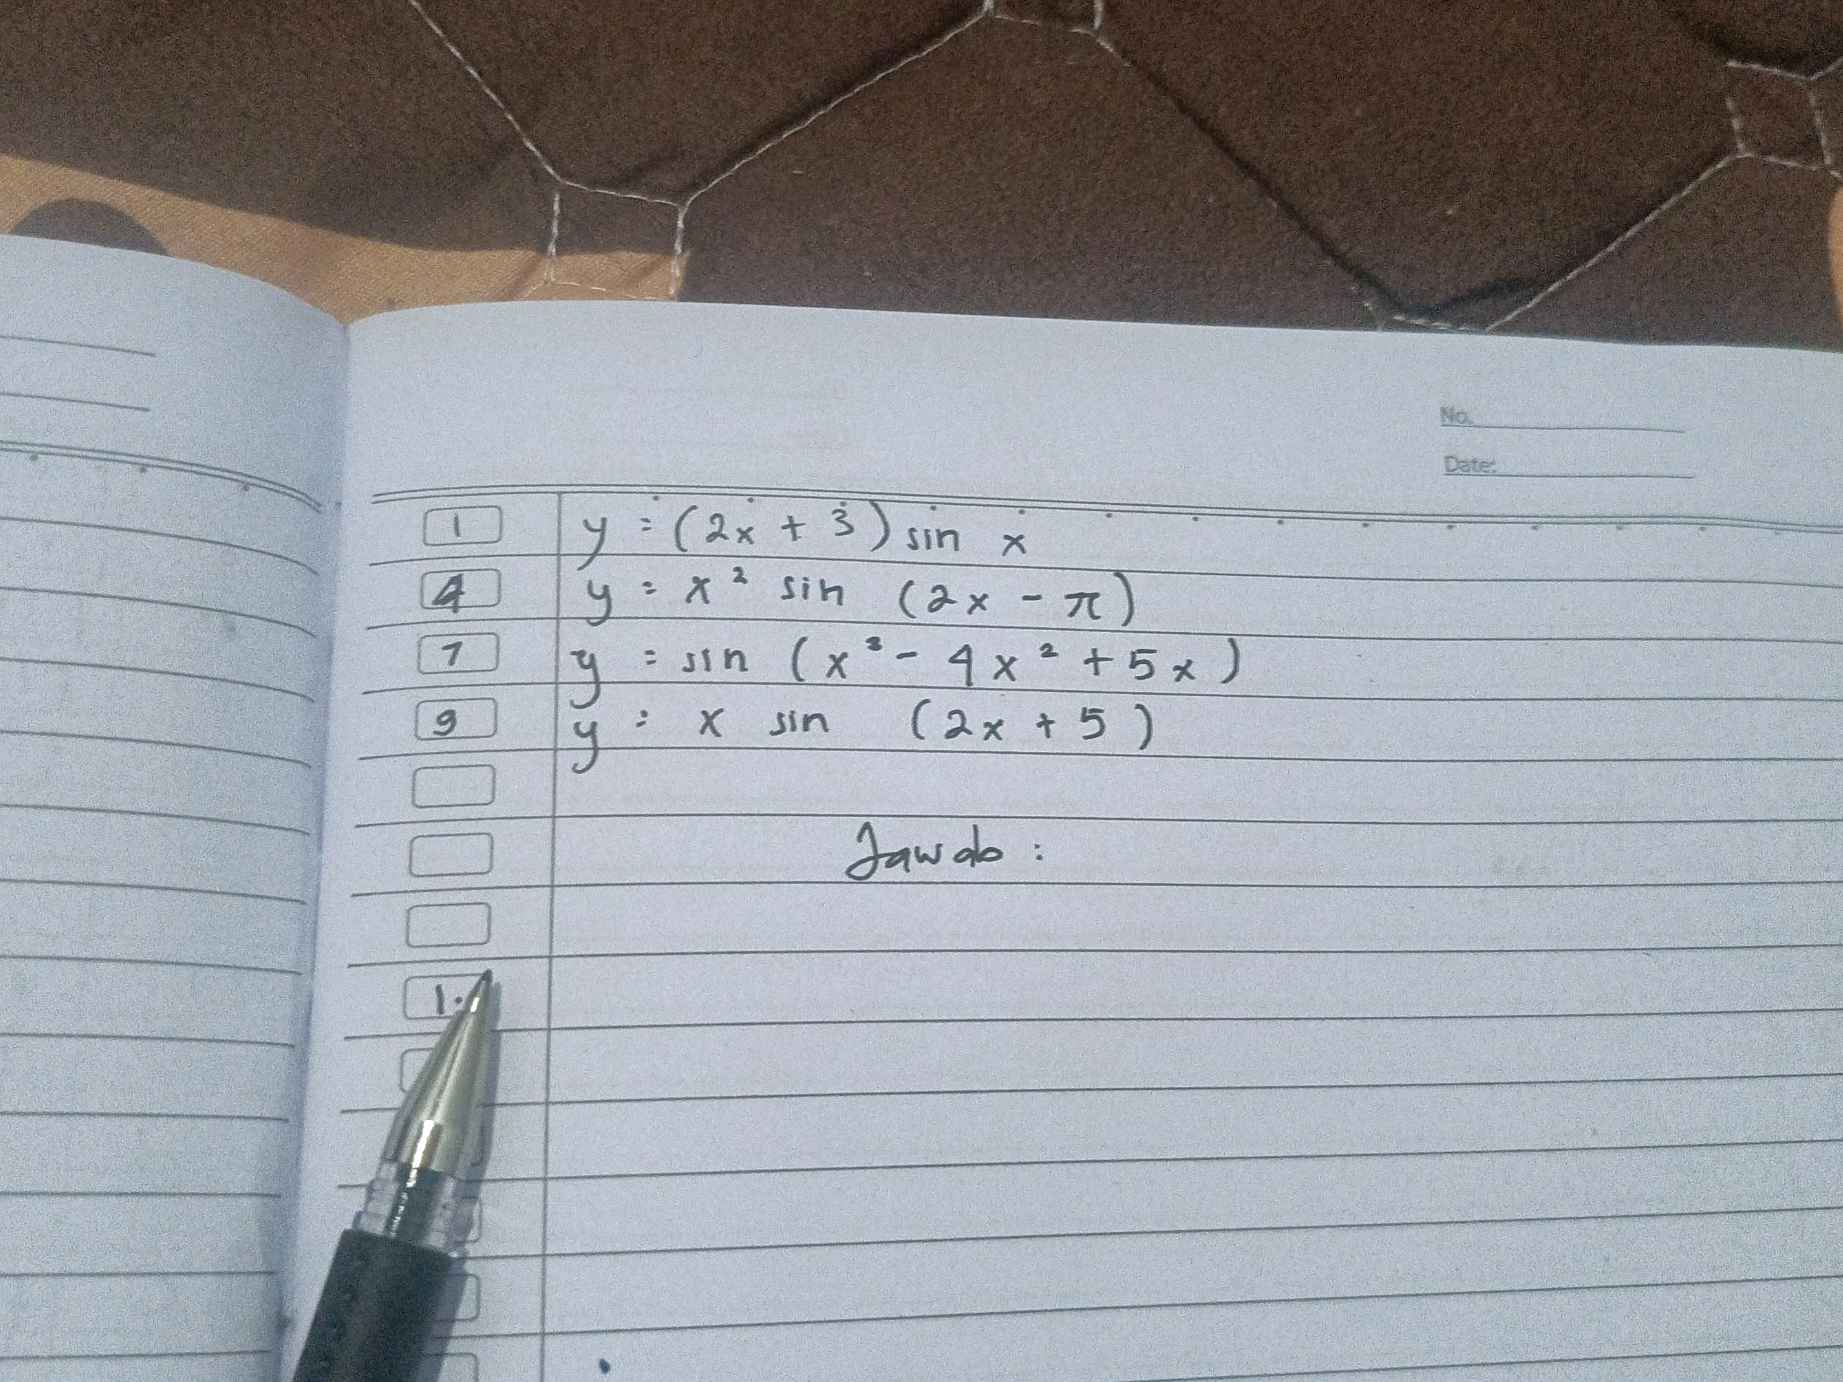 No.
Date:
1 y = (2x + 3) sin x
4 y = x² sin (2x - π)
7 y = sin (x³ - 4x² + 5x)
9 y = x sin (2x + 5)
Jawab :
1.